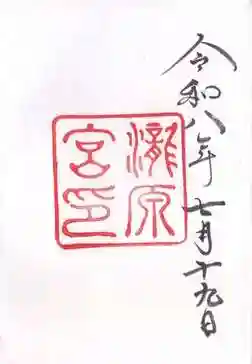 令和八年七月十九日
瀧原
宮印